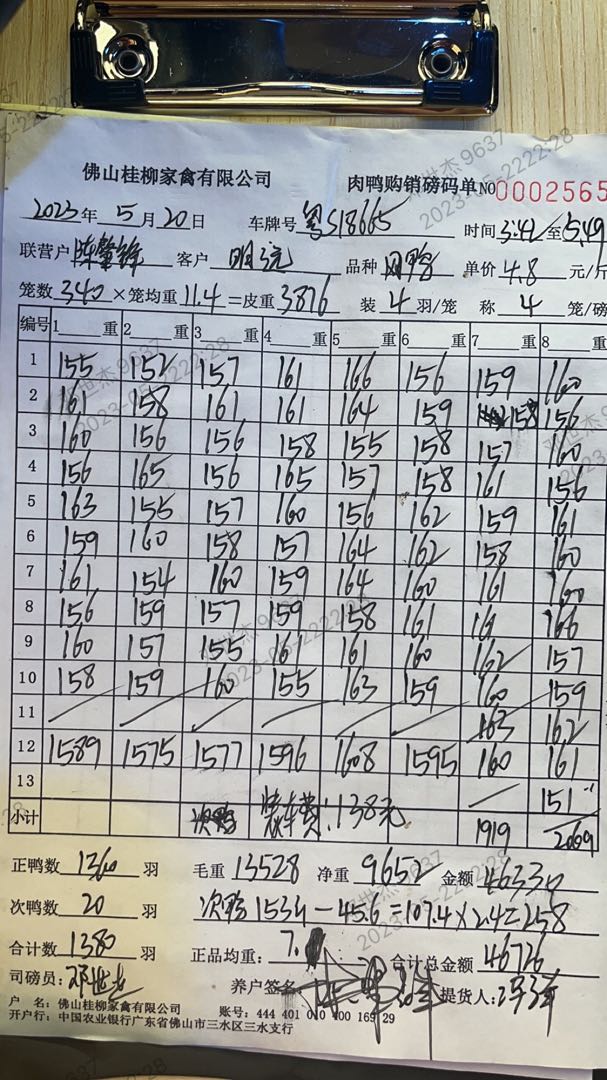 佛山桂柳家禽有限公司 肉鸭购销磅码单 NO 0002565
2023年 5月 20日 车牌号 粤S18665 时间 3:42 至 5:49
联营户 客户 品种 单价 4.8 元/斤
笼数 340 ×笼均重 11.4 =皮重 3876 装 4 羽/笼 称 4 笼/磅
编号 1 重 2 重 3 重 4 重 5 重 6 重 7 重 8 重
1 155 152 157 161 166 156 159 160
2 161 158 161 161 164 159 158 156
3 160 156 156 158 155 158 157 160
4 156 165 156 165 157 158 161 156
5 163 155 157 160 156 162 159 161
6 159 160 158 157 164 162 158 160
7 161 154 160 159 164 160 161 160
8 156 159 157 159 158 161 161 166
9 160 157 155 161 160 162 157
10 158 159 160 155 163 159 160 159
11 163 162
12 1589 1575 1577 1596 1608 1595 160 161
13 151
小计 次鸭 装车费:138元 1919 2069
正鸭数 1360 羽 毛重 13528 净重 9652 金额
次鸭数 20 羽 次鸭 153斤-45.6=107.4×2.4=258
合计数 1380 羽 正品均重: 7. 合计总金额 46726
司磅员: 邓世杰 养户签名 提货人:
户 名: 佛山桂柳家禽有限公司 账号: 444 401 010 400 169 29
开户行: 中国农业银行广东省佛山市三水区三水支行